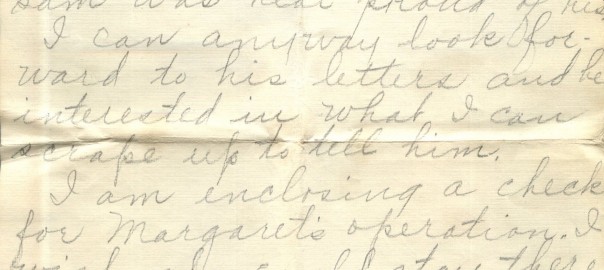 Sam was real proud of his
I can anyway look for-
ward to his letters and be
interested in what I can
scrape up to tell him.
I am enclosing a check
for Margaret's operation. I
wish stay there